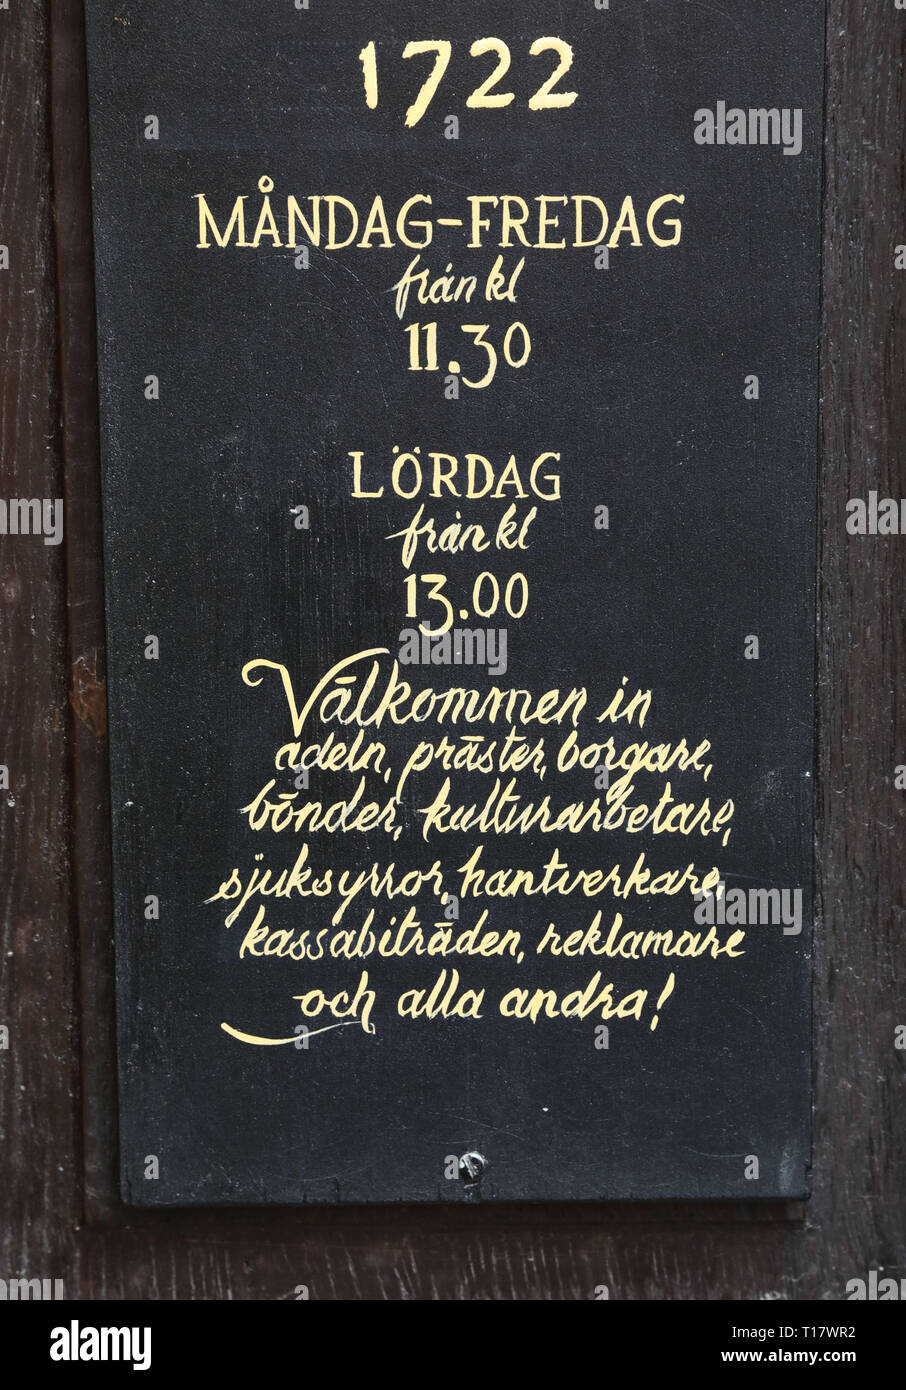 1722
MÅNDAG-FREDAG
från kl
11.30
LÖRDAG
från kl
13.00
Välkommen in
adeln, präster, borgare,
bönder, kulturarbetare,
sjuksyrror, hantverkare,
kassabiträden, reklamare
och alla andra!
alamy
Image ID: T17WR2
www.alamy.com